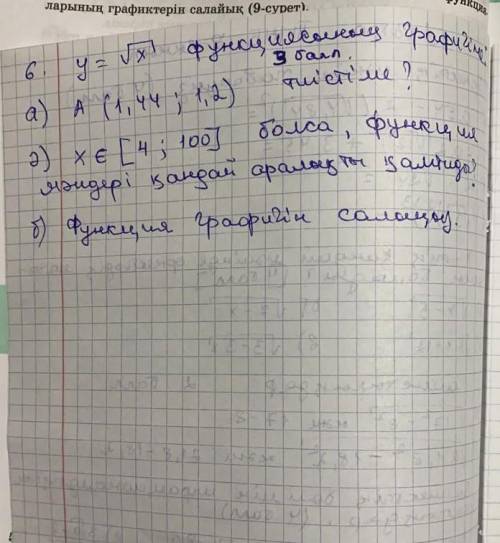 ларының графиктерін салайық (9-сурет).
функция
6. y = √x функциясының графигіне
3 балл.
а) A (1,44 ; 1,2) тиістіме?
ә) x ∈ [4 ; 100] болса, функция
мәндері қандай аралықты қамтиды?
б) Функция графигін салыңыз.